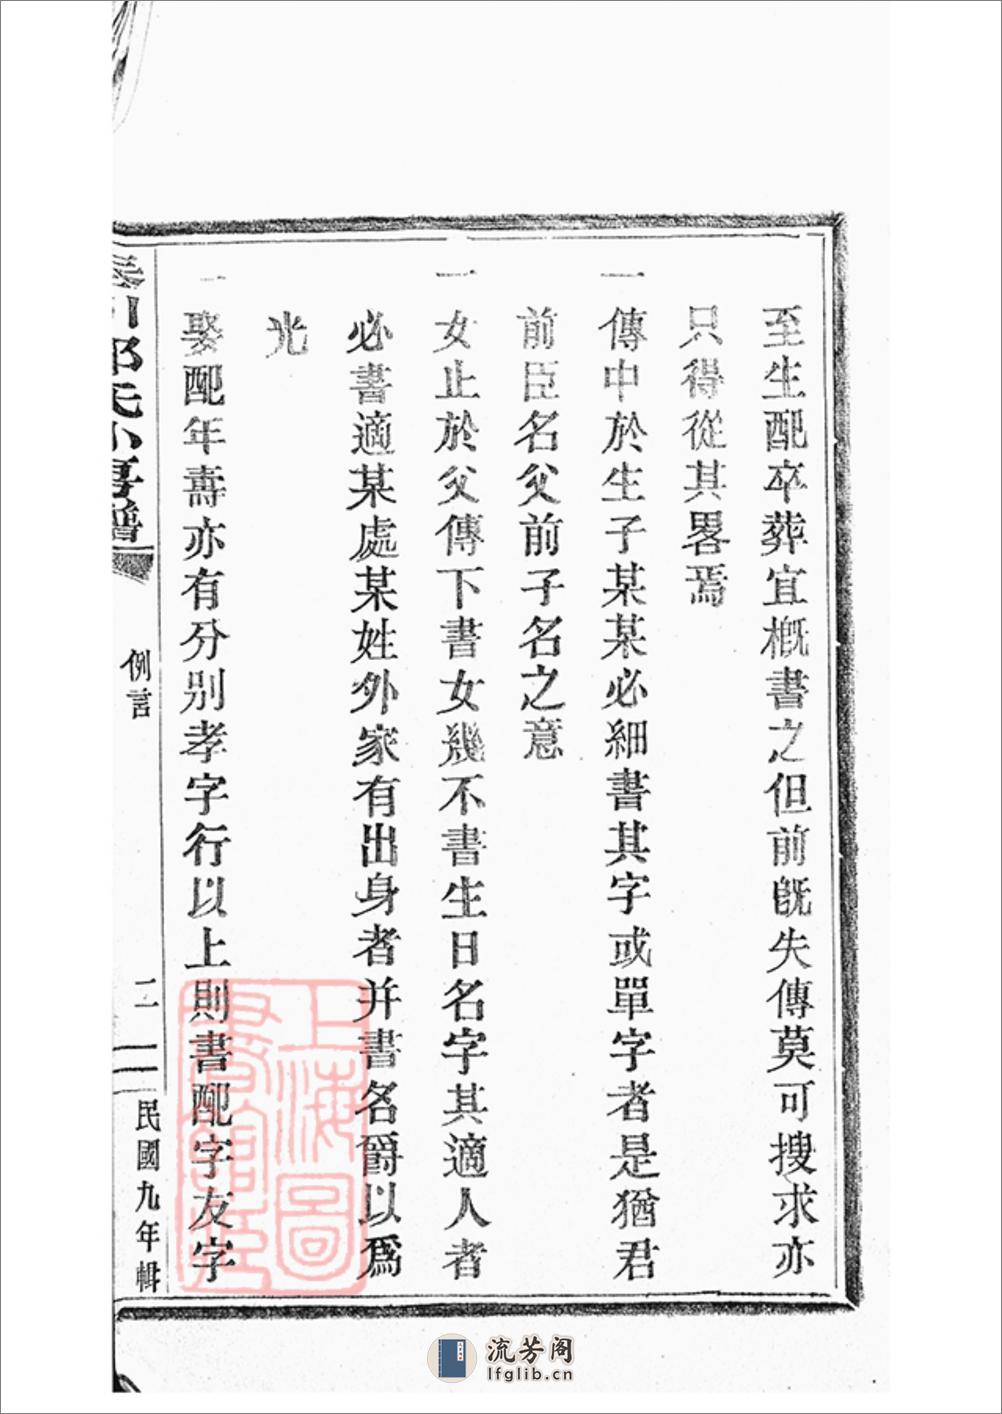 至生配卒葬宜槪書之但前旣失傳莫可搜求亦
只得從其畧焉
一傳中於生子某某必細書其字或單字者是猶君
前臣名父前子名之意
一女止於父傳下書女幾不書生日名字其適人者
必書適某處某姓外家有出身者并書名爵以爲
光
一娶配年壽亦有分别孝字行以上則書配字友字
氏小宗譜
例言
二
民國九年輯
上海圖書館藏
流芳阁
lfglib.cn